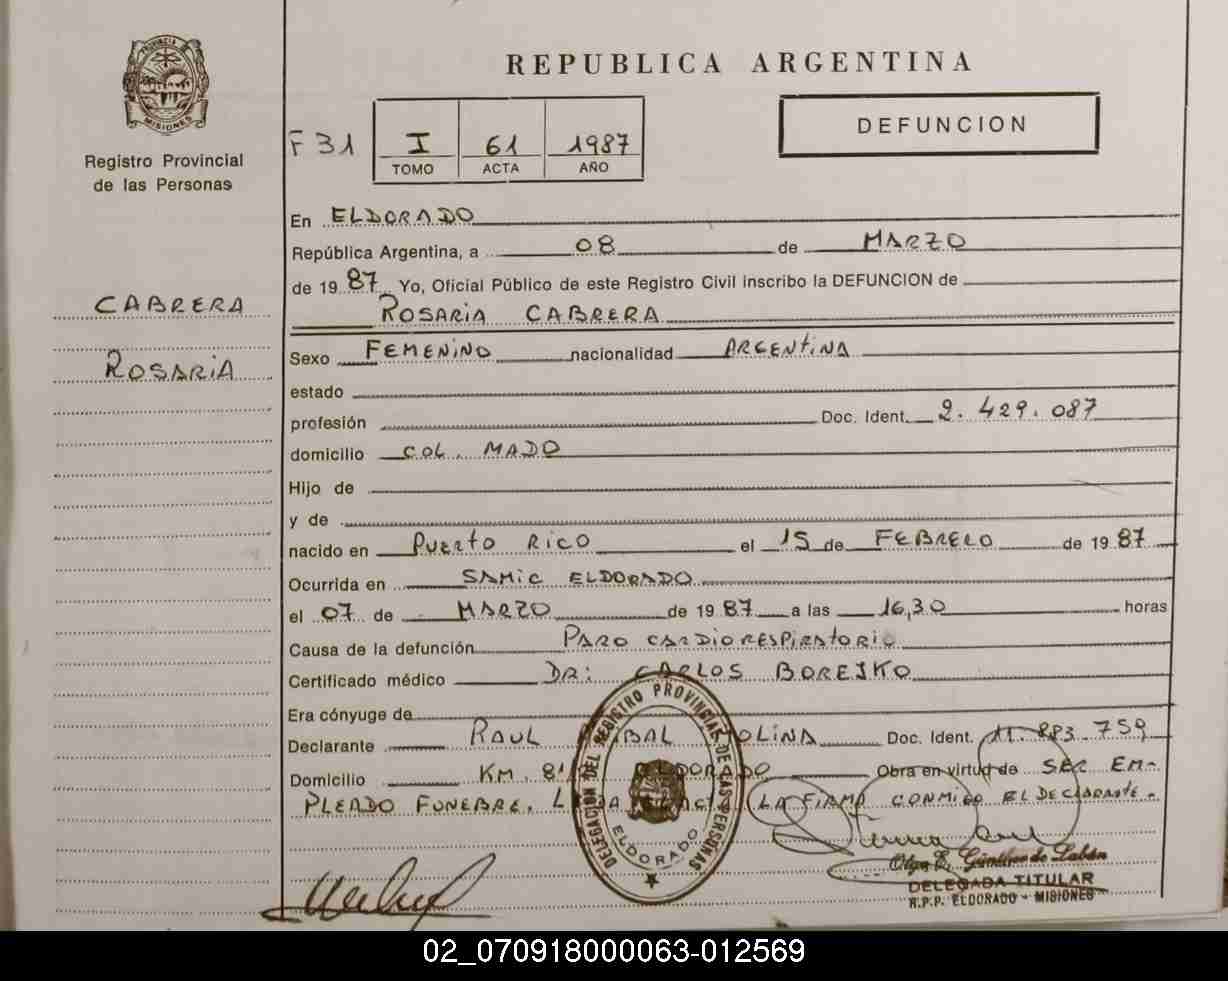 PROVINCIA DE
MISIONES
Registro Provincial
de las Personas
CABRERA
ROSARIA
REPUBLICA ARGENTINA
DEFUNCION
F 31
I 61 1987
TOMO ACTA AÑO
En ELDORADO
República Argentina, a 08 de MARZO
de 1987 Yo, Oficial Público de este Registro Civil inscribo la DEFUNCION de
ROSARIA CABRERA
Sexo FEMENINO nacionalidad ARGENTINA
estado
profesión Doc. Ident. 2.429.087
domicilio COL. MADO
Hijo de
y de
nacido en PUERTO RICO el 15 de FEBRERO de 1987
Ocurrida en SAMIC ELDORADO
el 07 de MARZO de 1987 a las 16,30 horas
Causa de la defunción PARO CARDIORESPIRATORIO
Certificado médico DR: CARLOS BOREJKO
Era cónyuge de
Declarante RAUL MOLINA Doc. Ident. 11.883.759
Domicilio KM. 81 ELDORADO Obra en virtud de SER EM-
PLEADO FUNEBRE. LA FIRMA CONMIGO EL DECLARANTE.
DELEGACION DEL REGISTRO PROVINCIAL DE LAS PERSONAS
ELDORADO
Olga E. Günther de Labán
DELEGADA TITULAR
R.P.P. ELDORADO - MISIONES
02_070918000063-012569